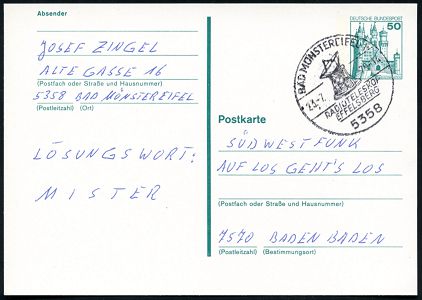 Absender
JOSEF ZINGEL
ALTE GASSE 16
(Postfach oder Straße und Hausnummer)
5358 BAD MÖNSTEREIFEL
(Postleitzahl) (Ort)
LÖSUNGSWORT:
MISTER
DEUTSCHE BUNDESPOST
50
BAD MÜNSTEREIFEL
23.-7.
RADIOTELESKOP
EFFELSBERG
5358
Postkarte
SÜDWESTFUNK
AUF LOS GEHT'S LOS
(Postfach oder Straße und Hausnummer)
7570 BADEN BADEN
(Postleitzahl) (Bestimmungsort)